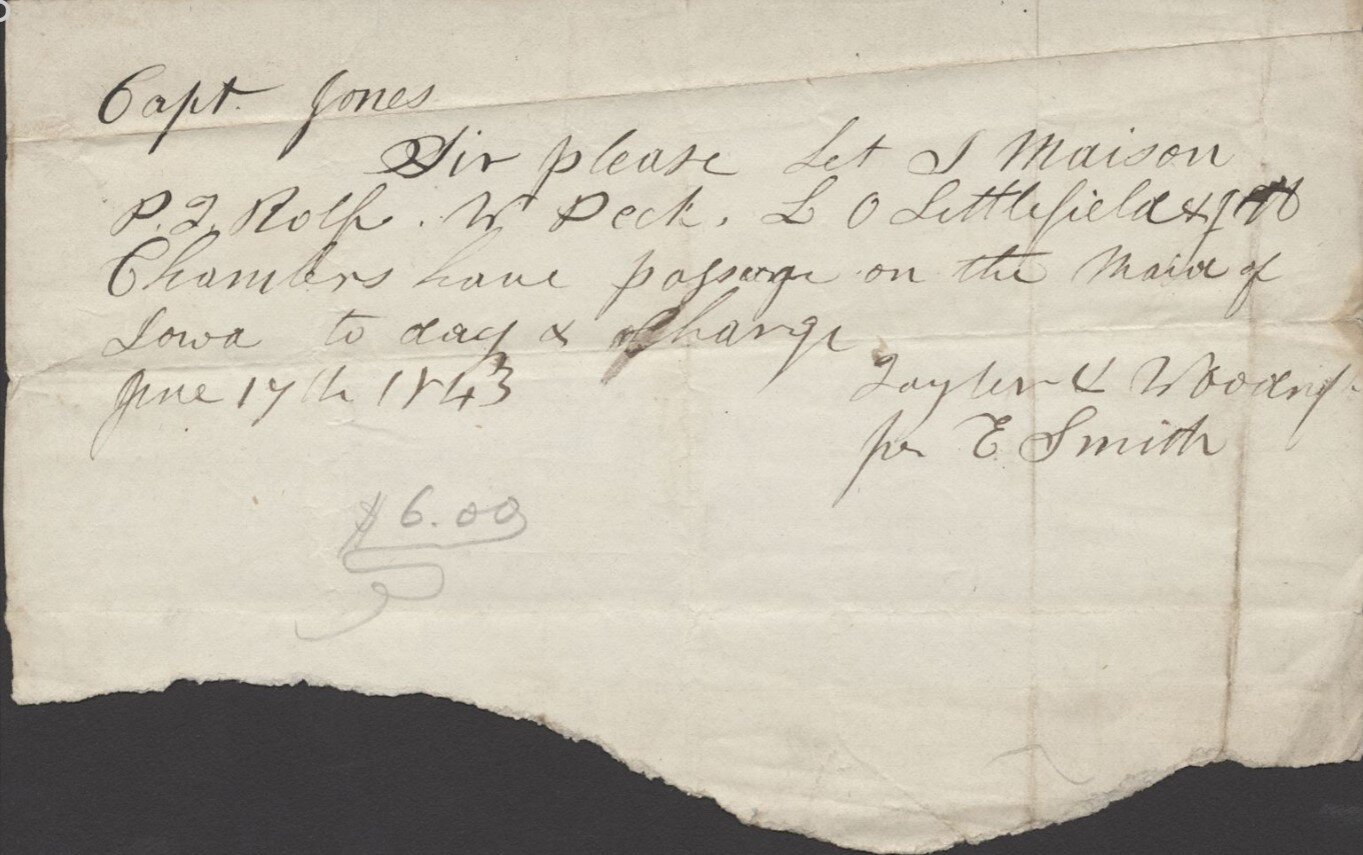 Capt. Jones
Sir please Let J Maison
P. T. Rolfe. W Peck, L O Littlefield &
Chambers have passage on the Maid of
Iowa to day & Charge
June 17th 1843
Taylor & Woodruff
per E Smith
$6.00